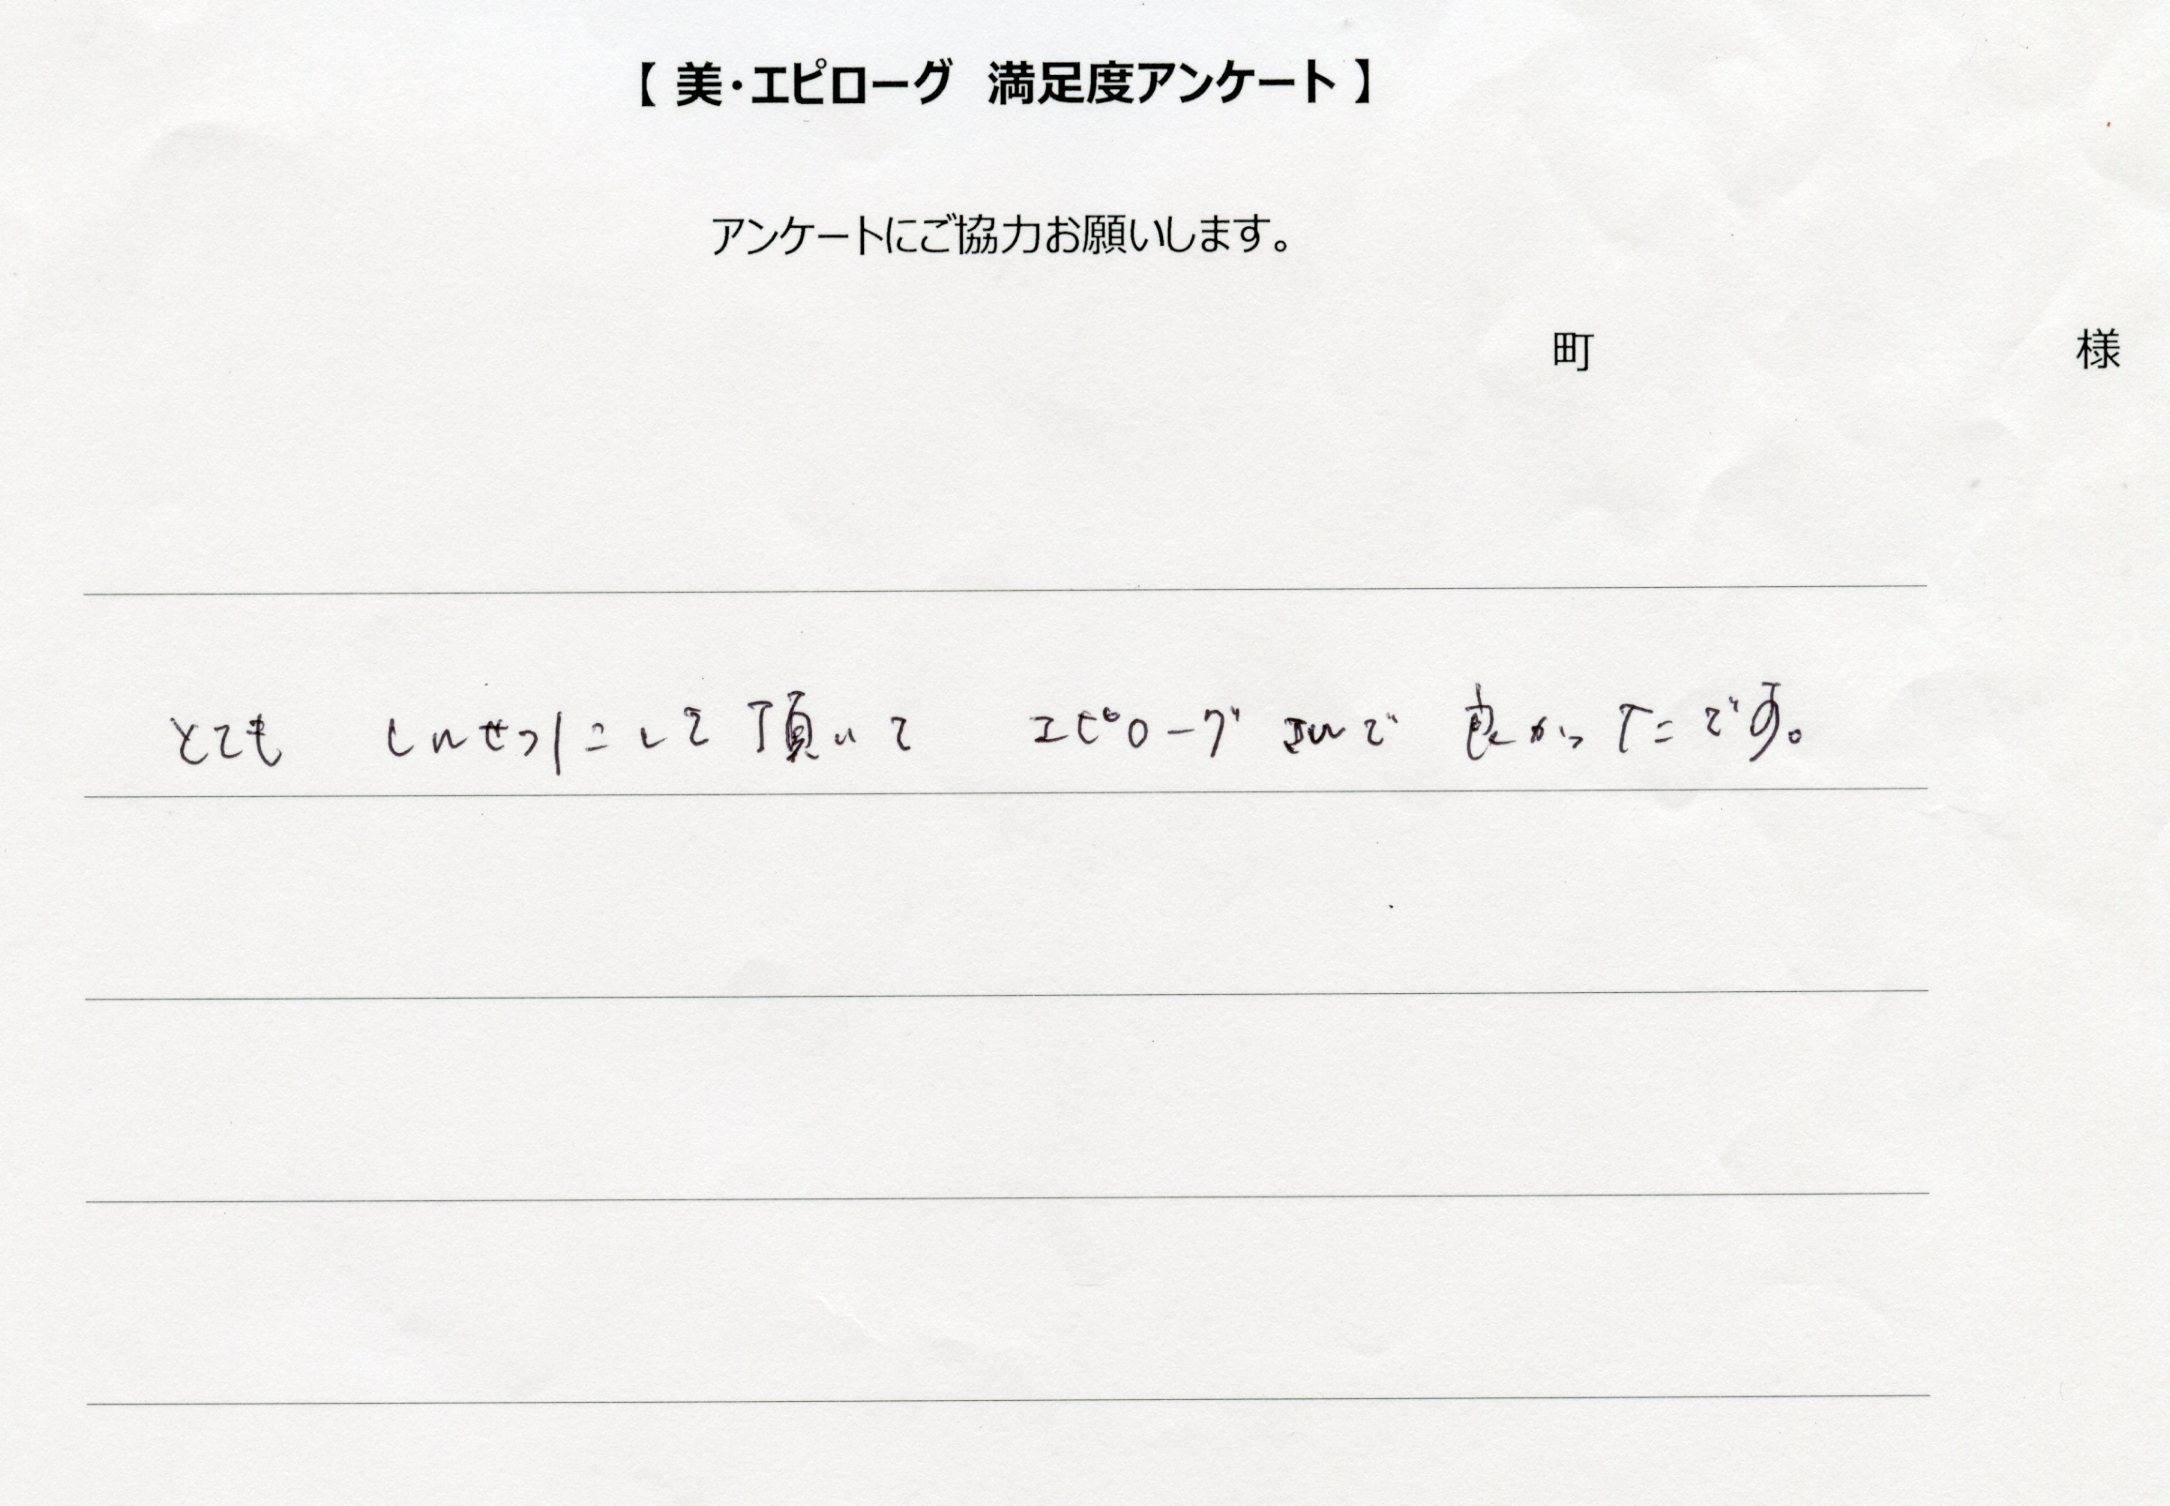 【 美・エピローグ　満足度アンケート 】
アンケートにご協力お願いします。
町　様
とても　しんせつにして頂いて　エピローグさんで　良かったです。